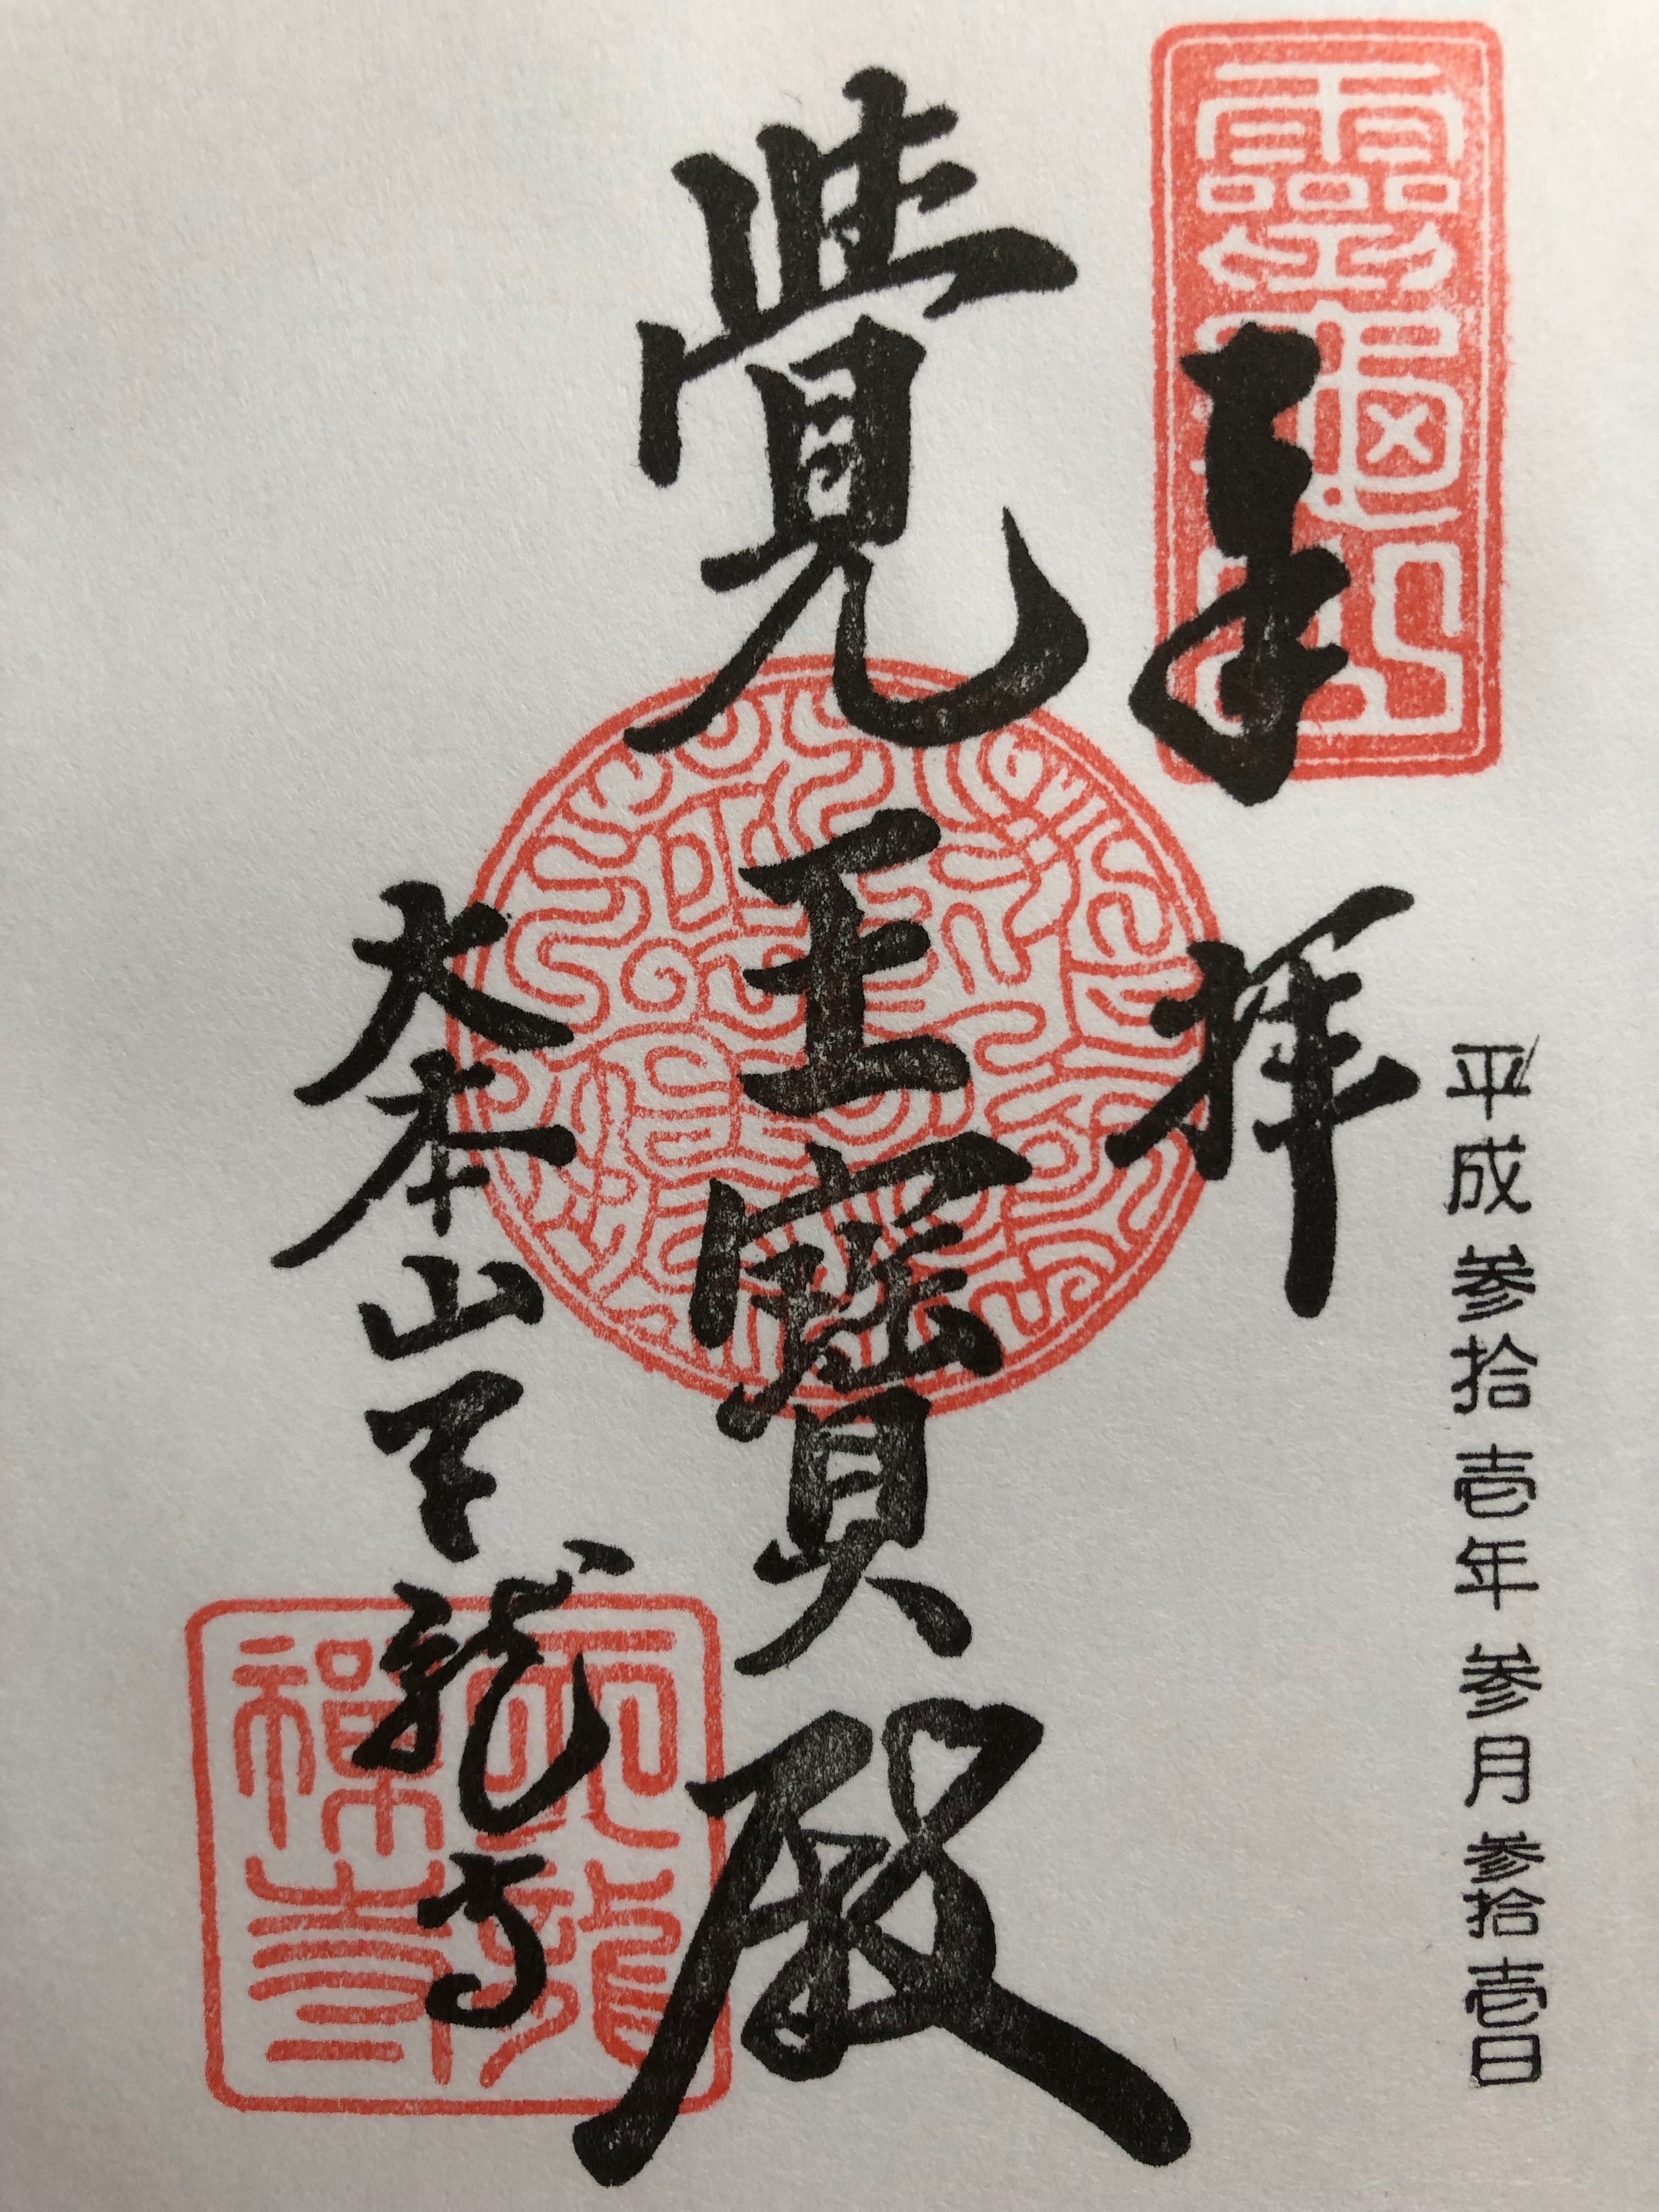 平成参拾壱年参月参拾壱日
奉拝
靈龜山
覺王寶殿
大本山天龍寺
天龍禪寺